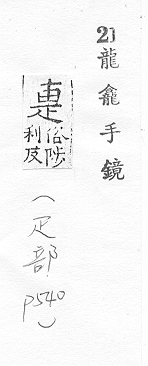 21 龍龕手鏡
俗陟
利反
(疋部 p540)